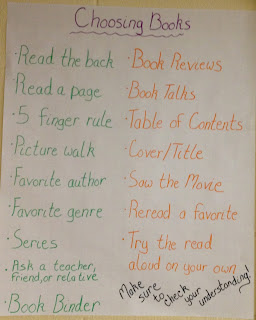 Choosing Books
·Read the back
·Read a page
·5 finger rule
·Picture walk
·Favorite author
·Favorite genre
·Series
·Ask a teacher,
friend, or relative
·Book Binder
·Book Reviews
·Book Talks
·Table of Contents
·Cover/Title
·Saw the Movie
·Reread a favorite
·Try the read
aloud on your own
Make sure to check your understanding!